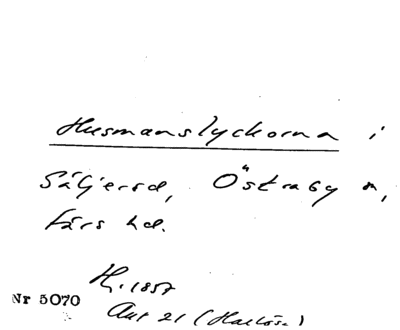 Husmanslyckorna i
Säljeröd, Östraby sn,
Färs hd.
H. 1857
Nr 5070
Akt 21 (Harlösa)